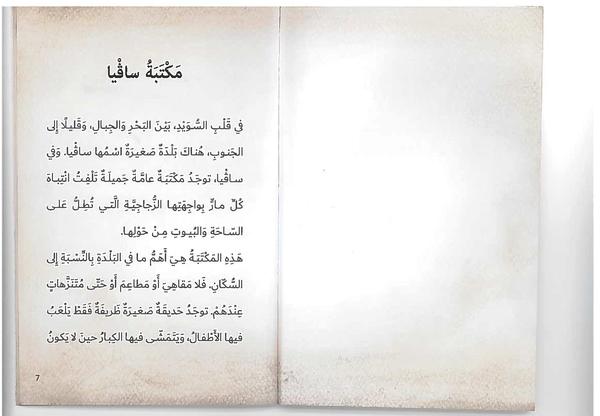 مَكْتَبَةُ ساڤْيا
في قَلْبِ السُّوَيْدِ، بَيْنَ البَحْرِ وَالجِبالِ، وَقَليلًا إلى
الجَنوبِ، هُناكَ بَلْدَةٌ صَغيرَةٌ اسْمُها ساڤْيا. وَفي
ساڤْيا، توجَدُ مَكْتَبَةٌ عامَّةٌ جَميلَةٌ تَلْفِتُ انْتِباهَ
كُلِّ مارٍّ بِواجِهَتِها الزُّجاجِيَّةِ الَّتي تُطِلُّ عَلى
السّاحَةِ وَالبُيوتِ مِنْ حَوْلِها.
هَذِهِ المَكْتَبَةُ هِيَ أَهَمُّ ما في البَلْدَةِ بِالنِّسْبَةِ إلى
السُّكّانِ. فَلا مَقاهِيَ أَوْ مَطاعِمَ أَوْ حَتّى مُتَنَزَّهاتٍ
عِنْدَهُمْ. توجَدُ حَديقَةٌ صَغيرَةٌ ظَريفَةٌ فَقَطْ يَلْعَبُ
فيها الأَطْفالُ، وَيَتَمَشّى فيها الكِبارُ حينَ لا يَكونُ
7